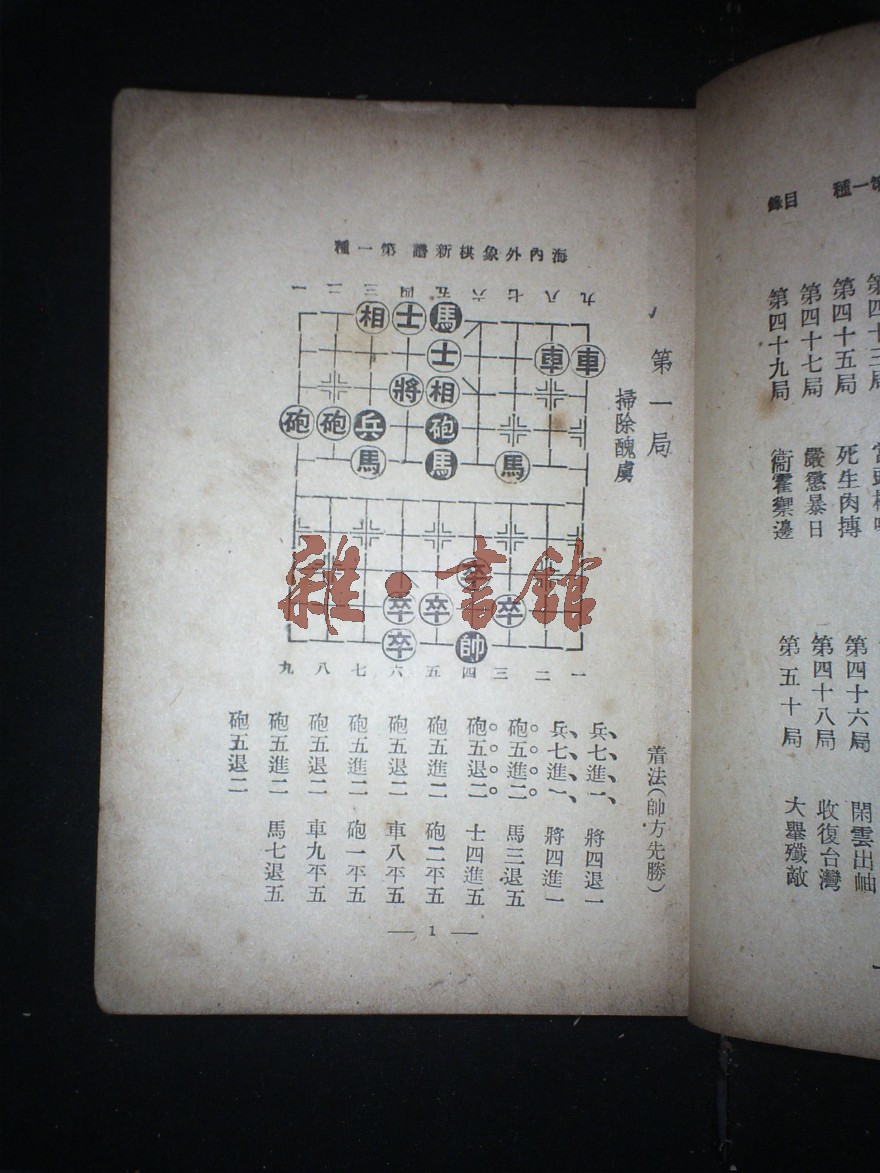 第一種 目錄
第四十五局 死生肉搏
第四十七局 嚴懲暴日
第四十九局 衞霍禦邊
第四十六局 閑雲出岫
第四十八局 收復台灣
第五十局 大舉殲敵
海內外象棋新譜 第一種
第一局
掃除醜虜
一二三四五六七八九
相士馬
士車車
將相
砲砲兵砲
馬馬馬
卒
卒卒卒
卒帥
九八七六五四三二一
雜·書館
着法(帥方先勝)
兵七進一 將四退一
兵七進一 將四進一
砲五進二 馬三退五
砲五退二 士四進五
砲五進二 砲二平五
砲五退二 車八平五
砲五進二 砲一平五
砲五退二 車九平五
砲五進二 馬七退五
砲五退二
— 1 —